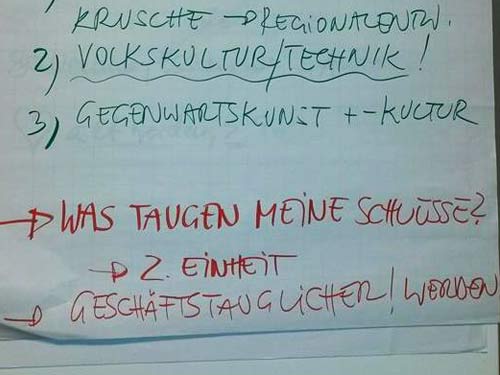 KRUSCHE → REGIONALENTW.
2) VOLKSKULTUR/TECHNIK!
3) GEGENWARTSKUNST + -KULTUR
→ WAS TAUGEN MEINE SCHLÜSSE?
→ 2. EINHEIT
→ GESCHÄFTSTAUGLICHER! WERDEN